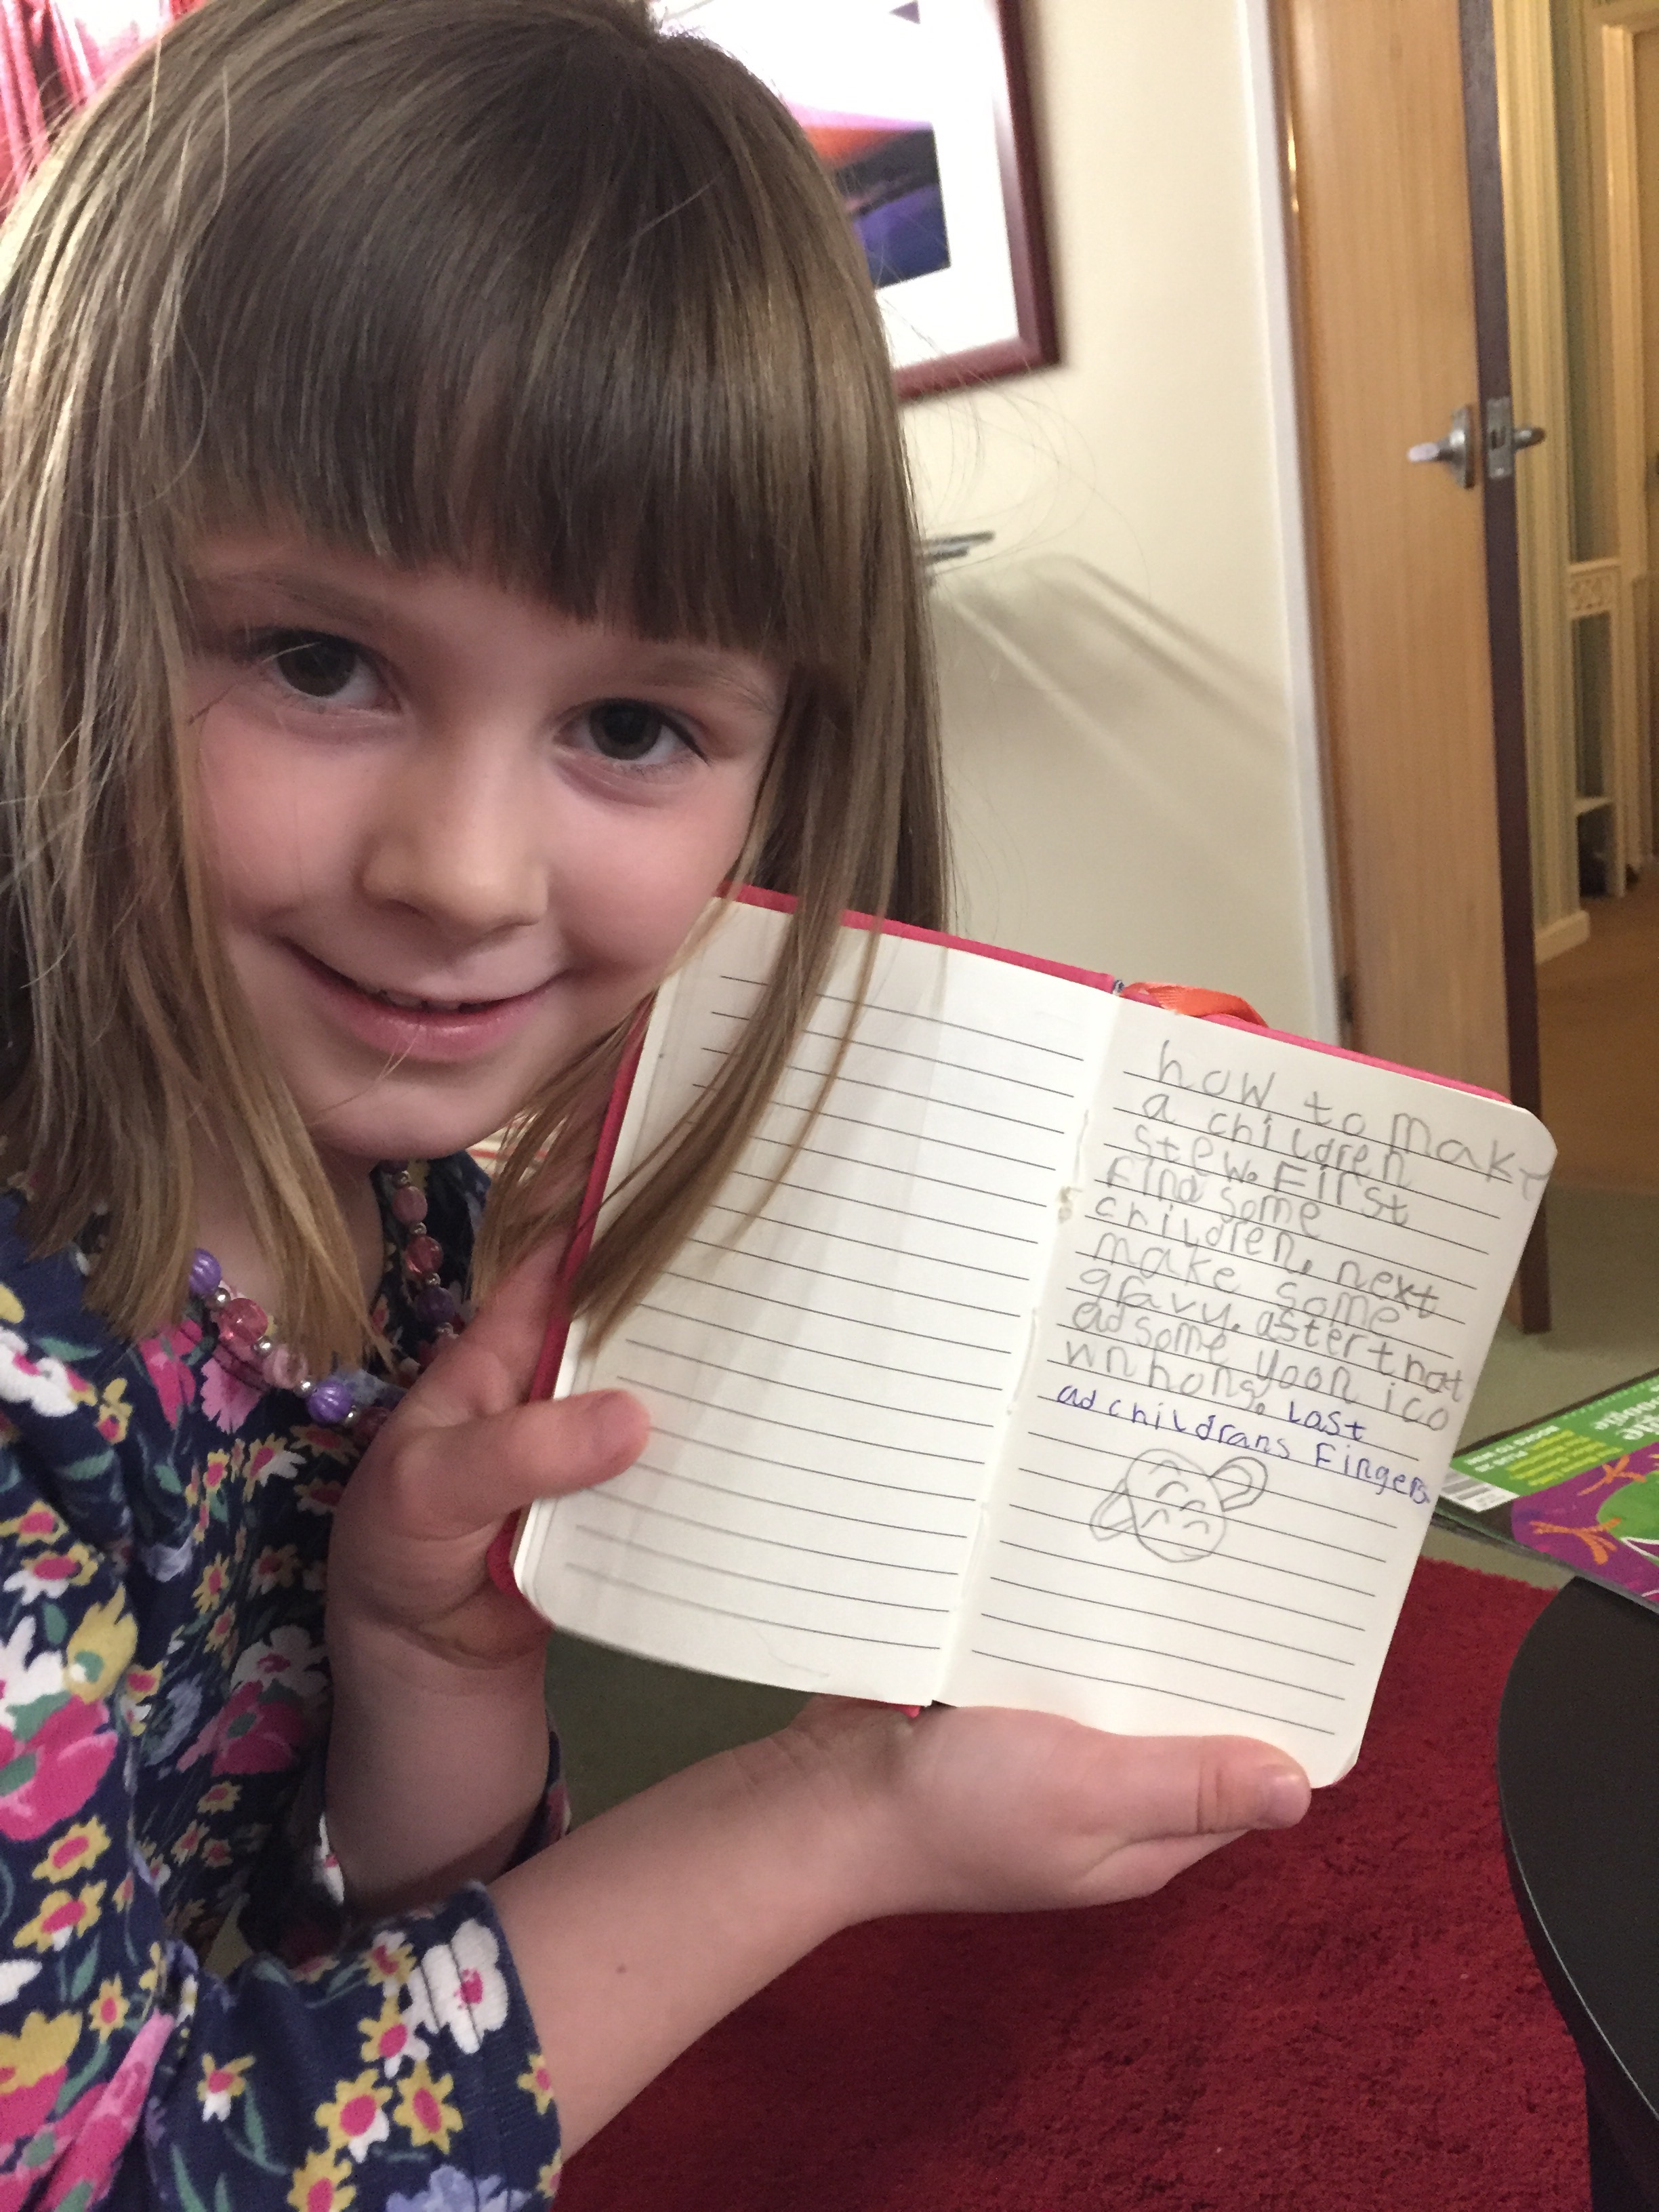 how to make
a children
stew. First
Find some
children, next
make some
gravy. aster that
ad some yoon ico
wn hons. Last
ad childrans Fingers